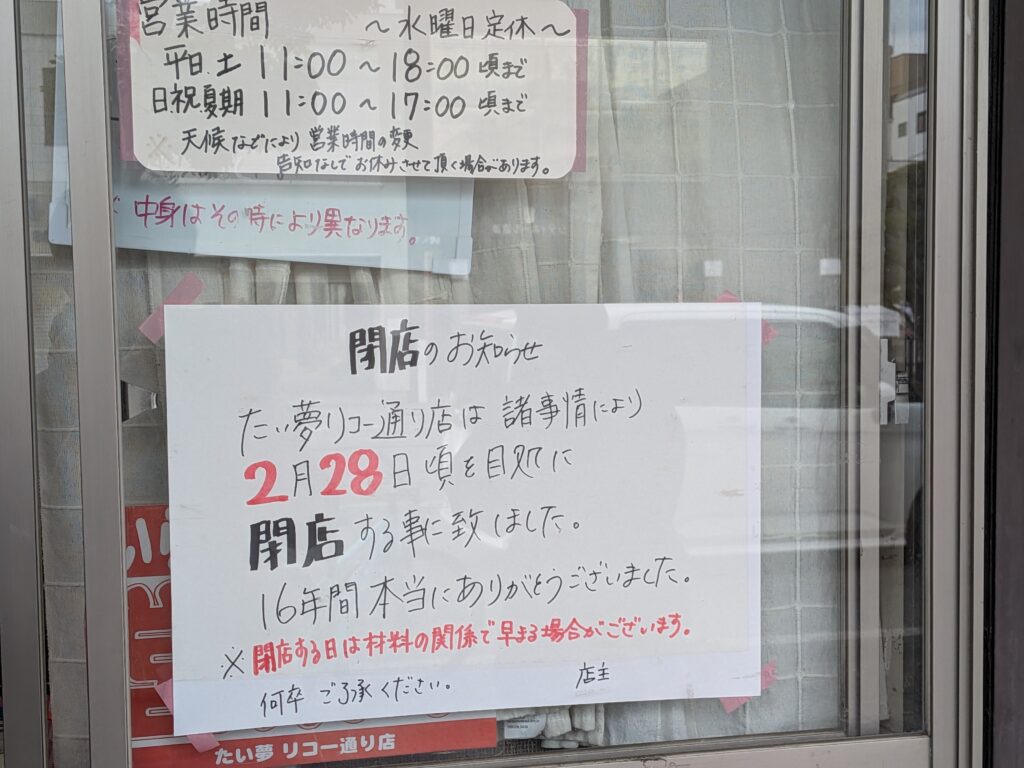 営業時間 ～水曜日定休～
平日.土 11:00～18:00 頃まで
日祝夏期 11:00～17:00 頃まで
※ 天候などにより 営業時間の変更
告知なしで お休みさせて頂く場合があります。
中身はその時により異なります。
閉店のお知らせ
たい夢リコー通り店は 諸事情により
2月28日頃を目処に
閉店する事に致しました。
16年間本当にありがとうございました。
※閉店する日は材料の関係で早まる場合がございます。
何卒 ご了承ください。 店主
たい夢 リコー通り店